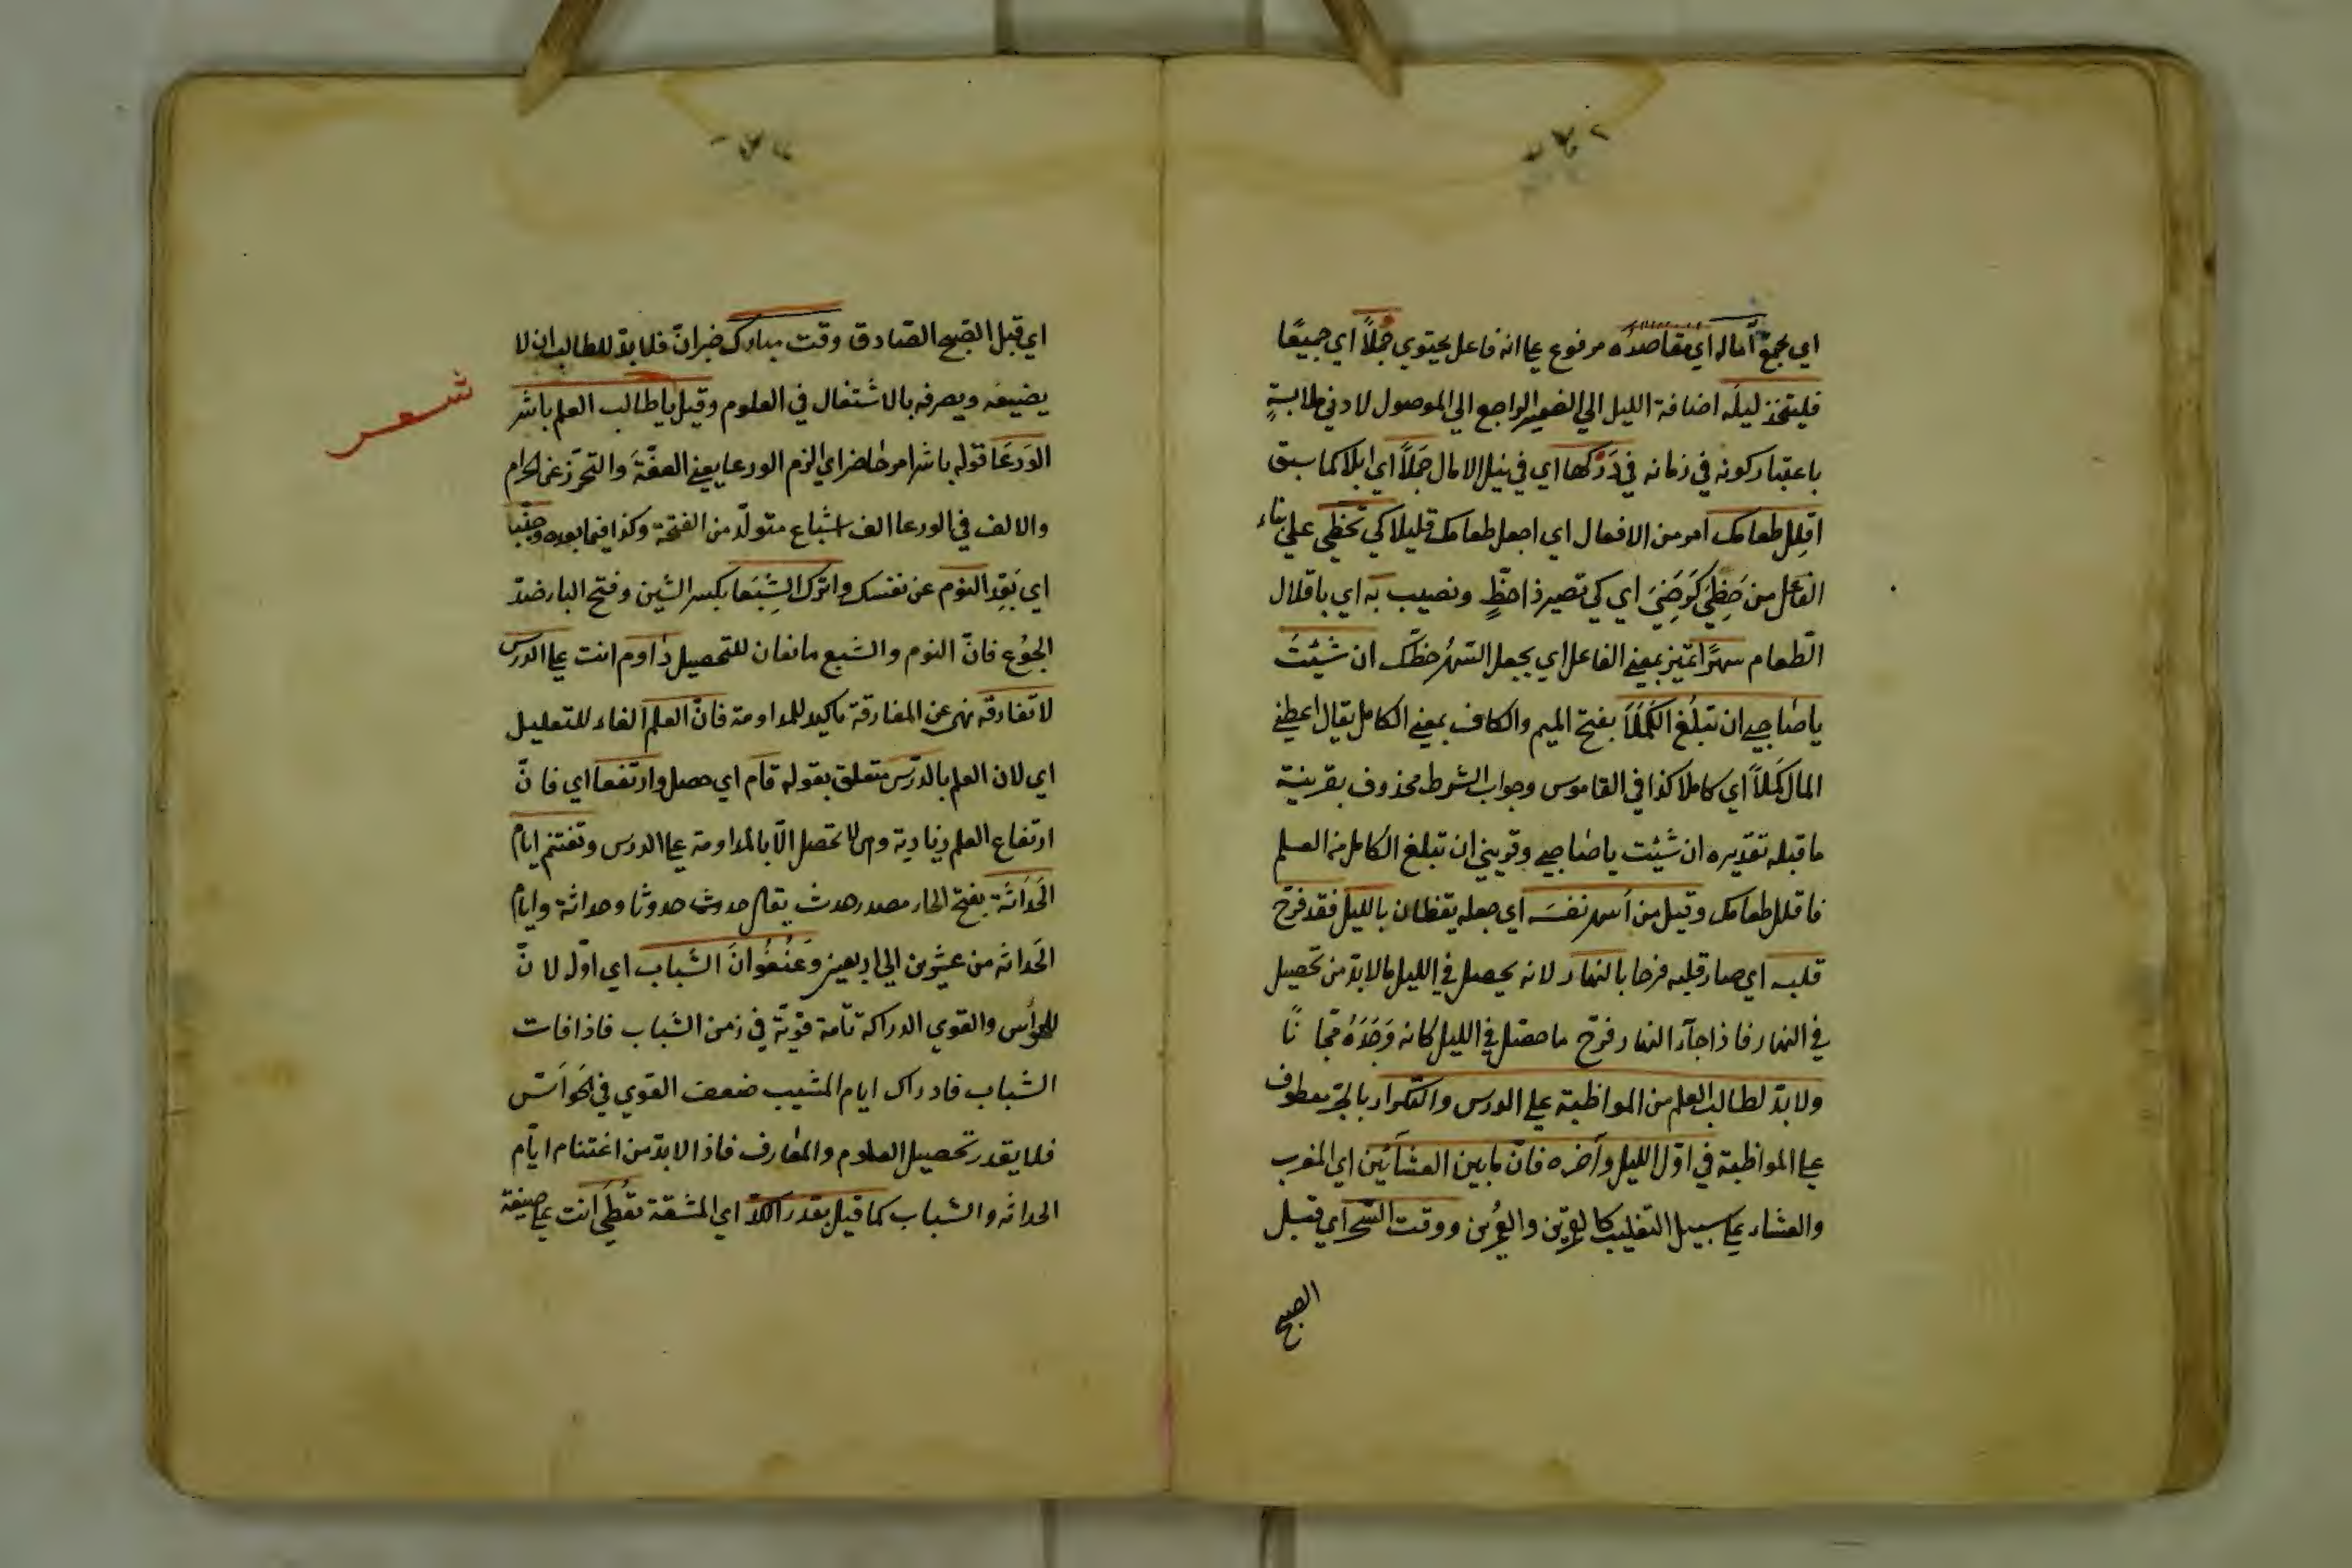 اي يجمع آماله اي مقاصده مرفوع علي انه فاعل يحتوي جُمَلًا اي جميعًا
فليتخذ ليله اضافة الليل الي الضمير الراجع الي الموصول لادني ملابسةٍ
باعتبار كونه في زمانه في دَرْكها اي في نيل الامال جَمَلًا اي ابلا كما سبق
اقلِل طعامك امر من الافعال اي اجعل طعامك قليلا كي تحظي علي بناء
الفاعل من حَظِيَ كَرَضِيَ اي كي تصير ذا حظٍّ ونصيب به اي باقلال
الطعام سهرًا تميز بمعني الفاعل اي يجعل السهرُ حظّك ان شئتَ
يا صاحبي ان تبلُغ الكَمَلَا بفتح الميم والكاف بمعني الكامل يقال اعطني
المال كَمَلًا اي كاملا كذا في القاموس وجواب الشرط محذوف بقرينة
ما قبله تقديره ان شئت يا صاحبي وقريني ان تبلغ الكامل من العلم
فاقلل طعامك وقيل من اسهر نفسَه اي جعله يقظان بالليل فقد فرّح
قلبه اي صار قلبه فرحا بالنهار لانه يحصل في الليل مالا بدّ من تحصيل
في النهار فاذا جآء النهار فرّح ما حصّل في الليل كانه وَجَدَهُ مجّا نًا
ولا بدّ لطالب العلم من المواظبة علي الدرس والتكرار بالجرّ معطوف
علي المواظبة في اوّل الليل وآخره فانّ ما بين العشآئين اي المغرب
والعشاء علي سبيل التغليب كالقمرين والعُمرين ووقت السَّحر اي قبل
الصبح
اي قبل الصّبح الصّادق وقت مبارك خبر انّ فلا بدّ للطالب ان لا
يضيعه ويصرفه بالاشتغال في العلوم وقيل يا طالب العلم باشر
شعر
الوَرَعَا قوله باشر امر حاضر اي الزم الورعا يعني العفّةَ والتحرّز عن الحرام
والالف في الورعا الف اشباع متولّد من الفتحة وكذا فيما بعده وجنّبا
اي بَعِّد النوم عن نفسك واترك الشِبَعا بكسر الشين وفتح الباء ضدّ
الجوُع فانّ النوم والشبع مانعان للتحصيل داوم انت علي الدرس
لا تفارقه نهي عن المفارقة تاكيد للمداومة فانّ العلم الفاء للتعليل
اي لان العلم بالدّرس متعلق بقوله قام اي حصل وارتفعا اي فانّ
ارتفاع العلم وزيادته لا تحصل الّا بالمداومة علي الدرس وتغتنم ايام
الحَدَاثَة بفتح الحاء مصدر حدث يقال حدث حدوثا وحداثة وايام
الحَداثه من عشرين الي اربعين وعَنُفُوانَ الشباب اي اوّل لانّ
الحواس والقوي الدراكة تامة قويّة في زمن الشباب فاذا فات
الشباب فادراك ايام المشيب ضعف القوي في الحَوَاسّ
فلا يقدر تحصيل العلوم والمعارف فاذا لا بدّ من اغتنام ايّام
الحداثه والشباب كما قيل بقدر الكدّ اي المشقة تعُطَي انت علي صيغة